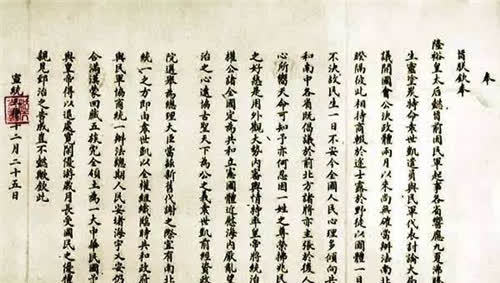 奉
旨朕欽奉
隆裕皇太后懿旨前因民軍起事各省響應九夏沸騰
生靈塗炭特命袁世凱遣員與民軍代表討論大局
議開國會公決政體兩月以來尚無確當辦法南北
睽隔彼此相持商輟於途士露於野徒以國體一日
不決故民生一日不安今全國人民心理多傾向共
和南中各省既倡議於前北方諸將亦主張於後人
心所嚮天命可知予亦何忍因一姓之尊榮拂兆民
之好惡是用外觀大勢內審輿情特率皇帝將統治
權公諸全國定為共和立憲國體近慰海內厭亂望
治之心遠協古聖天下為公之義袁世凱前經資政
院選舉為總理大臣當茲新舊代謝之際宜有南北
統一之方即由袁世凱以全權組織臨時共和政府
與民軍協商統一辦法總期人民安堵海宇乂安仍
合滿漢蒙回藏五族完全領土為一大中華民國予
與皇帝得以退處寬閒優游歲月長受國民之優禮
親見郅治之告成豈不懿歟欽此
宣統 十二月二十五日